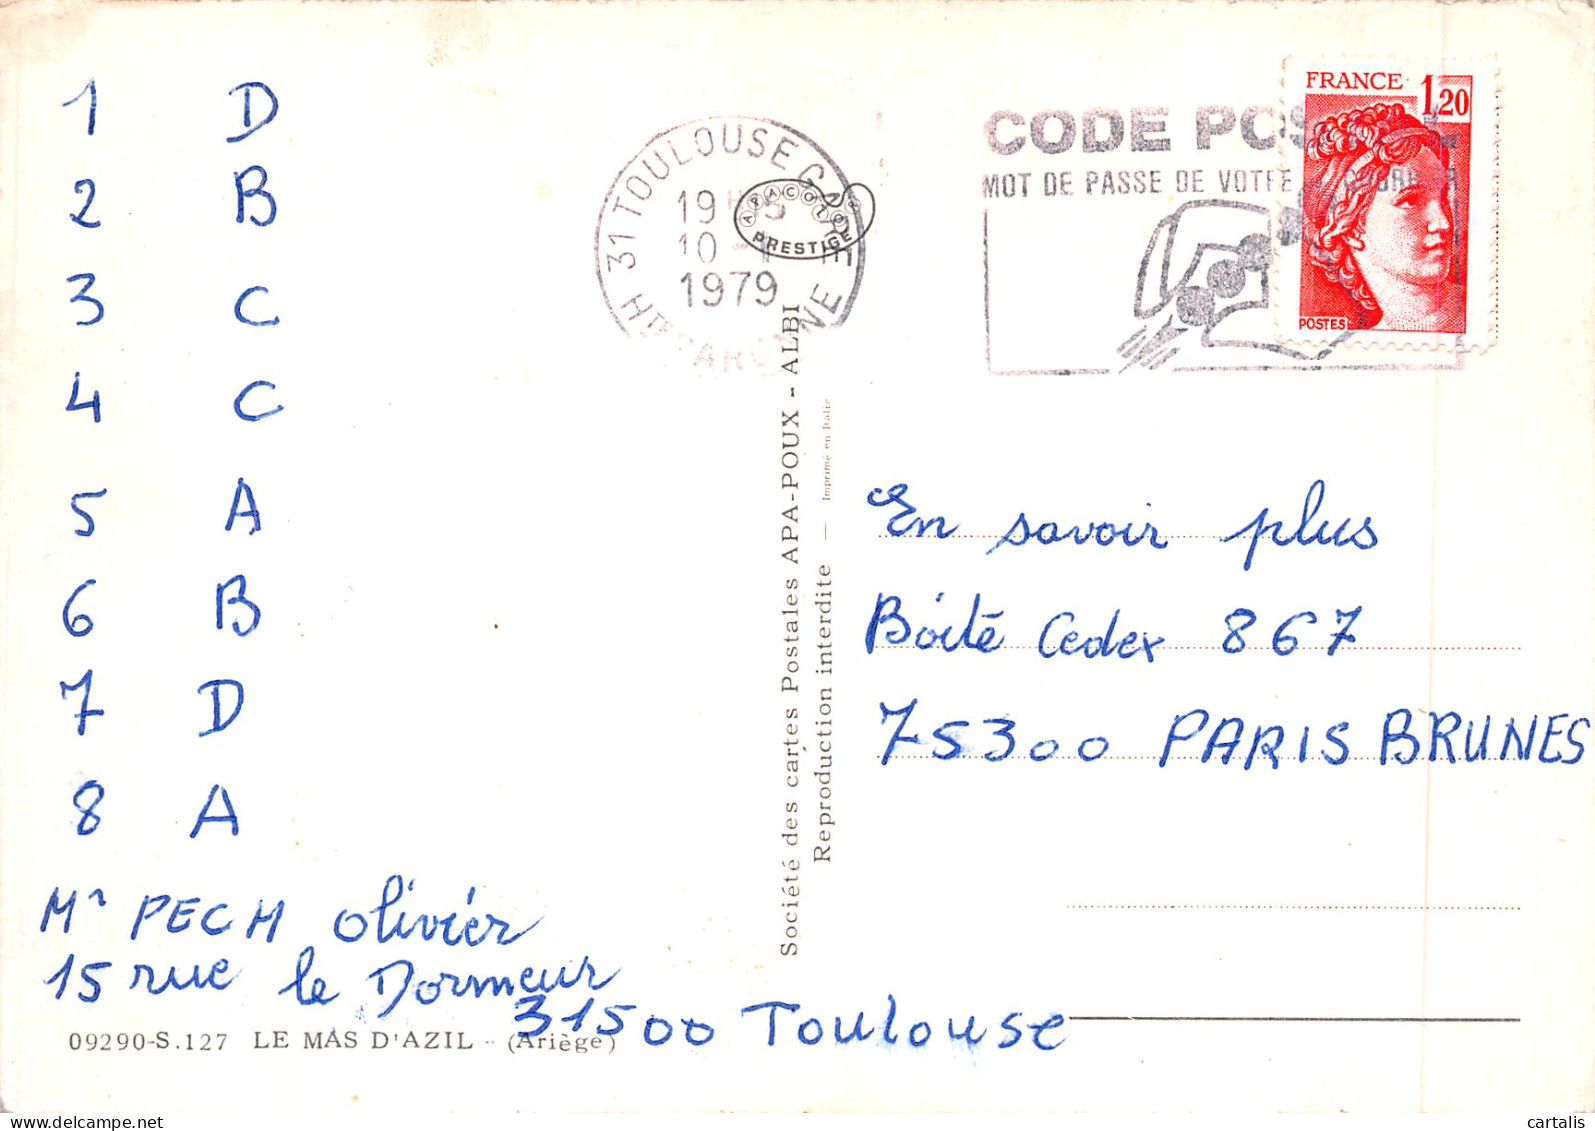 1 D
2 B
3 C
4 C
5 A
6 B
7 D
8 A
Mr PECH Olivier
15 rue le Dormeur
31500 Toulouse
09290-S.127 LE MAS D'AZIL - (Ariège)
31 TOULOUSE GARE
19 H
10 -
1979
Hte GARONNE
APACOLOR
PRESTIGE
Société des cartes Postales APA-POUX - ALBI
Reproduction interdite — Imprimé en Italie
CODE POS
MOT DE PASSE DE VOTRE COURRIER
FRANCE 1,20
POSTES
En savoir plus
Boité Cedex 867
75300 PARIS BRUNES
cartalis delcampe.net